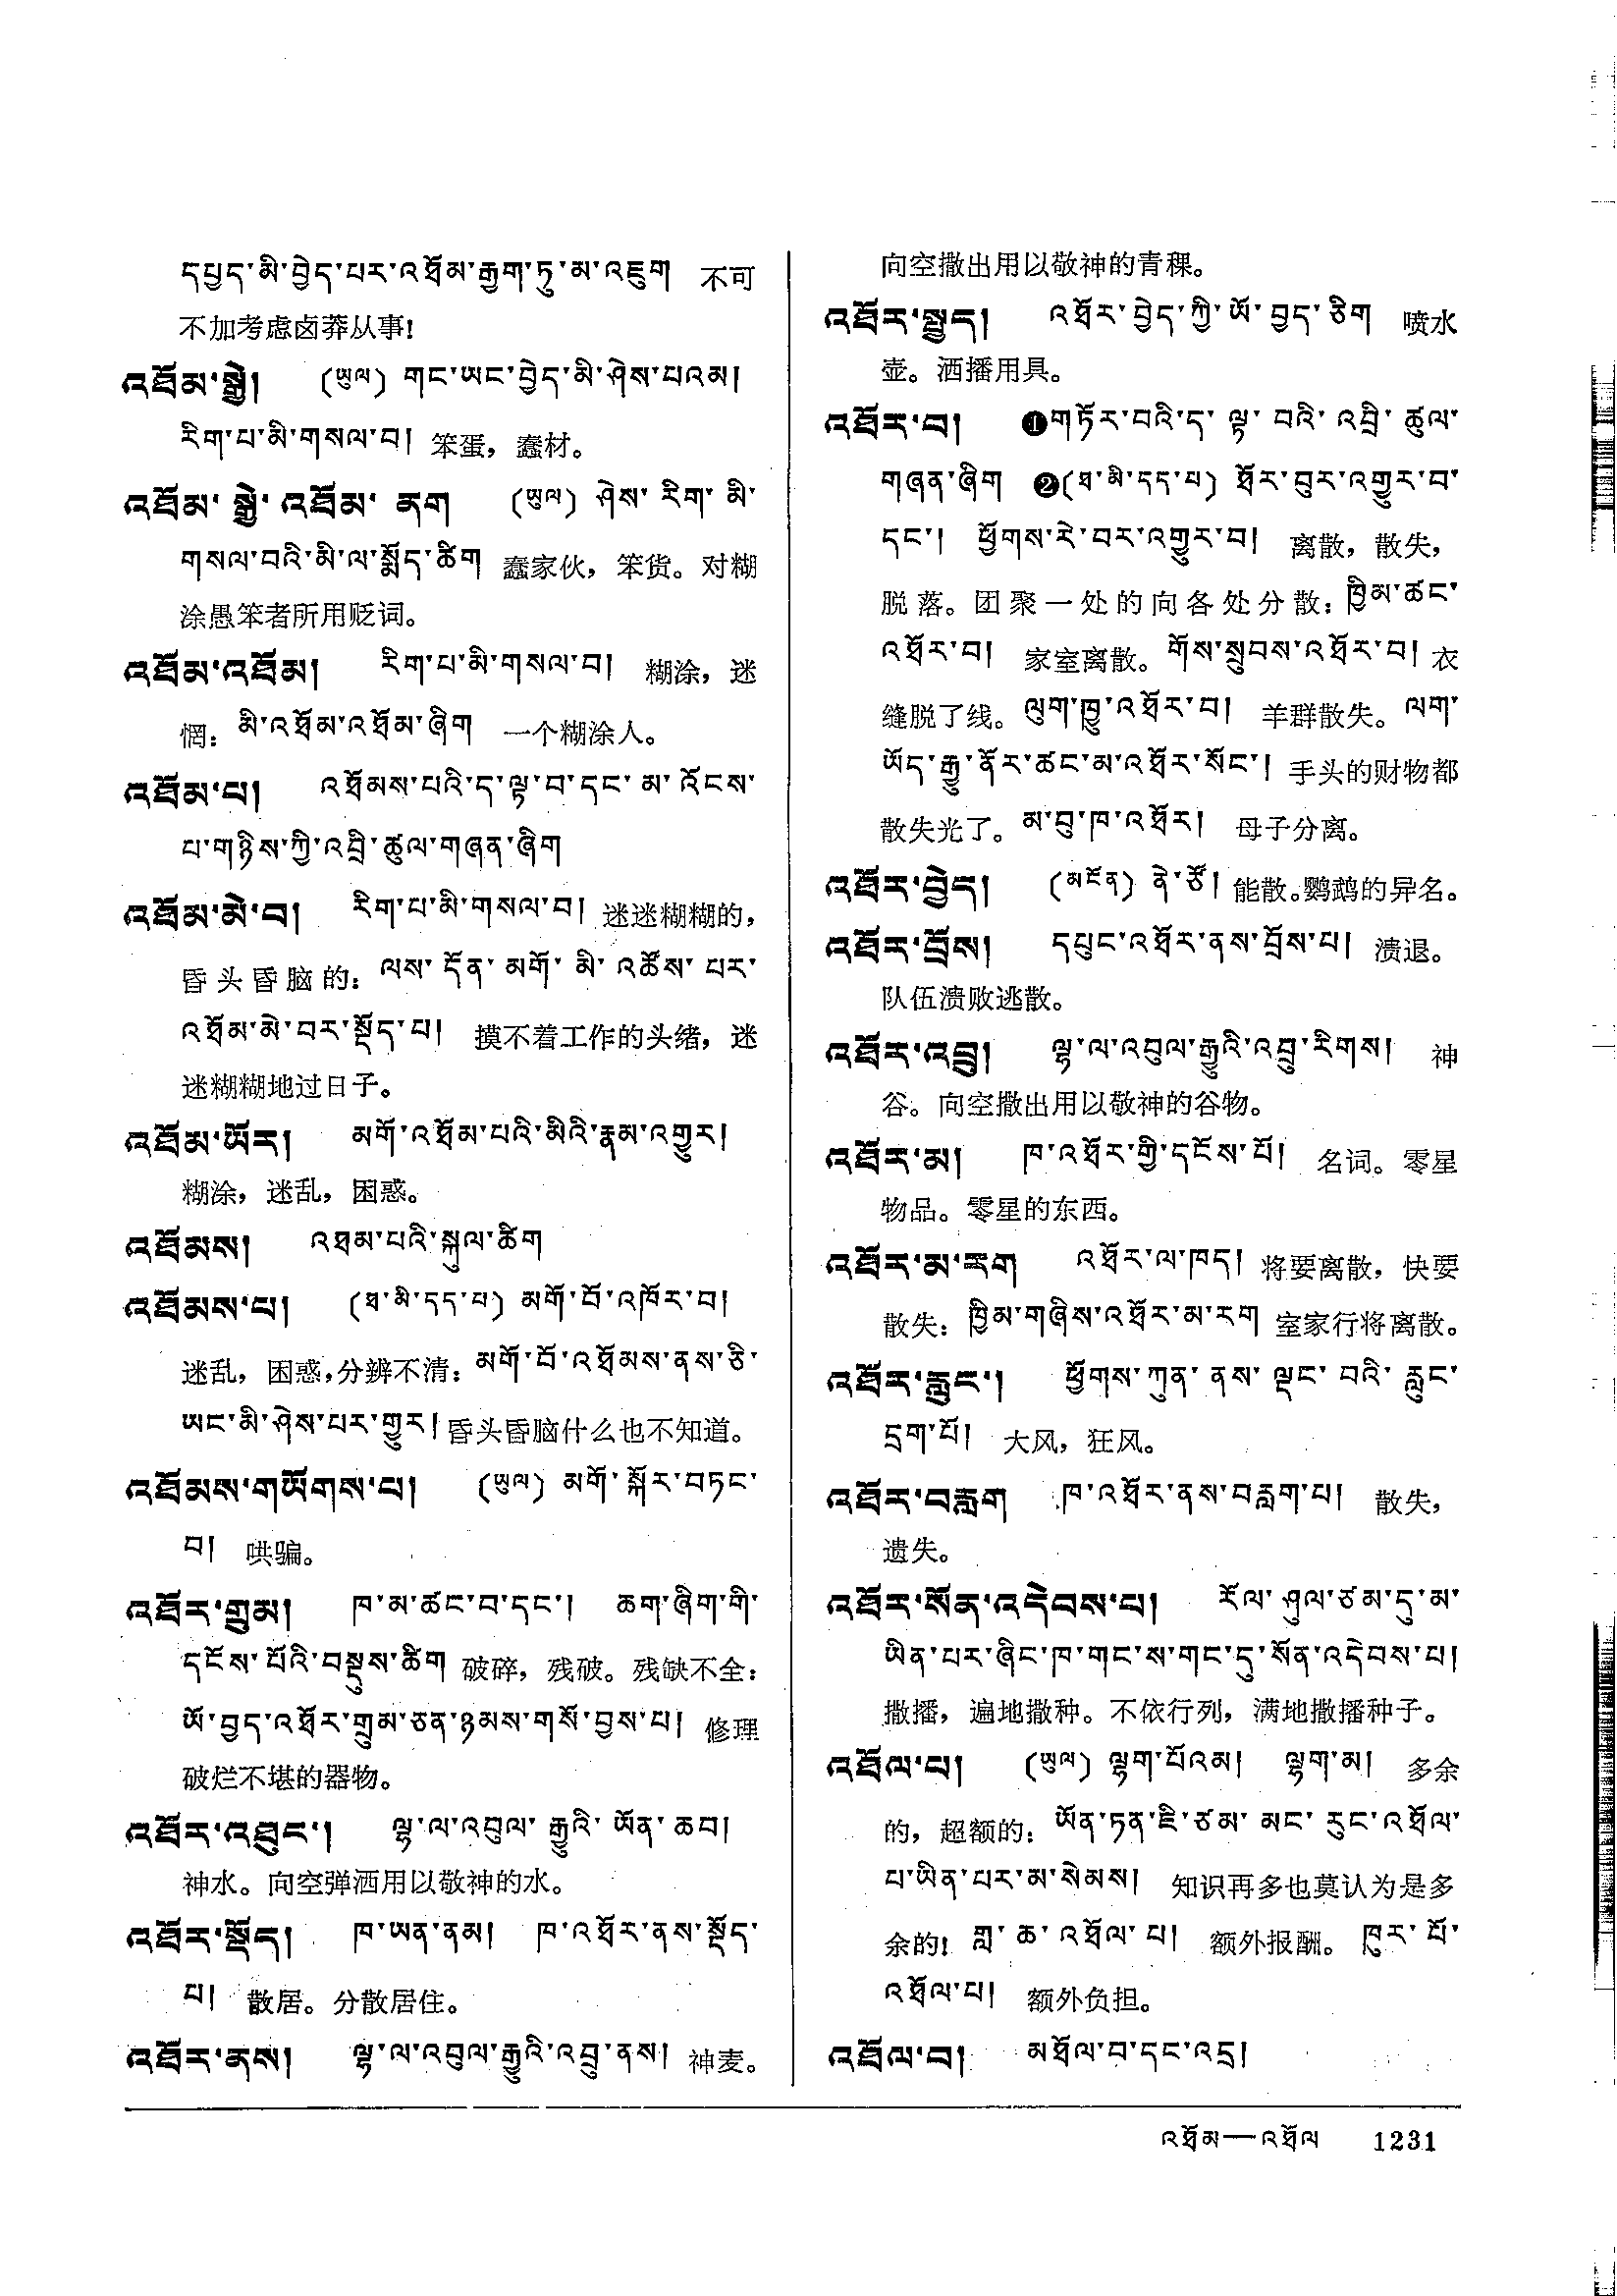 དཔྱད་མི་བྱེད་པར་འཐོམ་རྒྱག་ཏུ་མ་འཇུག 不可
不加考虑卤莽从事!
འཐོམ་སྒྱེ། (ཡུལ) གང་ཡང་བྱེད་མི་ཤེས་པའམ།
རིག་པ་མི་གསལ་བ། 笨蛋，蠢材。
འཐོམ་སྒྱེ་འཐོམ་ནག (ཡུལ) ཤེས་རིག་མི་
གསལ་བའི་མི་ལ་སྨོད་ཚིག 蠢家伙，笨货。对糊
涂愚笨者所用贬词。
འཐོམ་འཐོམ། རིག་པ་མི་གསལ་བ། 糊涂，迷
惘：མི་འཐོམ་འཐོམ་ཞིག 一个糊涂人。
འཐོམ་པ། འཐོམས་པའི་ད་ལྟ་བ་དང་མ་འོངས་
པ་གཉིས་ཀྱི་འབྲི་ཚུལ་གཞན་ཞིག
འཐོམ་མེ་བ། རིག་པ་མི་གསལ་བ། 迷迷糊糊的，
昏头昏脑的：ལས་དོན་མགོ་མི་འཚོས་པར་
འཐོམ་མེ་བར་སྡོད་པ། 摸不着工作的头绪，迷
迷糊糊地过日子。
འཐོམ་ཡོར། མགོ་འཐོམ་པའི་མིའི་རྣམ་འགྱུར།
糊涂，迷乱，困惑。
འཐོམས། འཐམ་པའི་སྐུལ་ཚིག
འཐོམས་པ། (ཐ་མི་དད་པ) མགོ་བོ་འཁོར་བ།
迷乱，困惑，分辨不清：མགོ་བོ་འཐོམས་ནས་ཅི་
ཡང་མི་ཤེས་པར་གྱུར། 昏头昏脑什么也不知道。
འཐོམས་གཡོགས་པ། (ཡུལ) མགོ་སྐོར་བཏང་
བ། 哄骗。
འཐོར་གྲུམ། ཁ་མ་ཚང་བ་དང་། ཆག་ཞིག་གི་
དངོས་པོའི་བསྡུས་ཚིག 破碎，残破。残缺不全：
ཡོ་བྱད་འཐོར་གྲུམ་ཅན་ཉམས་གསོ་བྱས་པ། 修理
破烂不堪的器物。
འཐོར་འཐུང་། ལྷ་ལ་འབུལ་རྒྱུའི་ཡོན་ཆབ།
神水。向空弹洒用以敬神的水。
འཐོར་སྡོད། ཁ་ཡན་ནམ། ཁ་འཐོར་ནས་སྡོད་
པ། 散居。分散居住。
འཐོར་ནས། ལྷ་ལ་འབུལ་རྒྱུའི་འབྲུ་ནས། 神麦。
向空撒出用以敬神的青稞。
འཐོར་སྤྱད། འཐོར་བྱེད་ཀྱི་ཡོ་བྱད་ཅིག 喷水
壶。洒播用具。
འཐོར་བ། ❶གཏོར་བའི་ད་ལྟ་བའི་འབྲི་ཚུལ་
གཞན་ཞིག ❷(ཐ་མི་དད་པ) ཐོར་བུར་འགྱུར་བ་
དང་། ཕྱོགས་རེ་བར་འགྱུར་བ། 离散，散失，
脱落。团聚一处的向各处分散：ཁྱིམ་ཚང་
འཐོར་བ། 家室离散。གོས་སྲུབས་འཐོར་བ། 衣
缝脱了线。ལུག་ཁྱུ་འཐོར་བ། 羊群散失。ལག་
ཡོད་རྒྱུ་ནོར་ཚང་མ་འཐོར་སོང་། 手头的财物都
散失光了。མ་བུ་ཁ་འཐོར། 母子分离。
འཐོར་བྱེད། (མངོན) ནེ་ཙོ། 能散。鹦鹉的异名。
འཐོར་བྲོས། དཔུང་འཐོར་ནས་བྲོས་པ། 溃退。
队伍溃败逃散。
འཐོར་འབྲུ། ལྷ་ལ་འབུལ་རྒྱུའི་འབྲུ་རིགས། 神
谷。向空撒出用以敬神的谷物。
འཐོར་མ། ཁ་འཐོར་གྱི་དངོས་པོ། 名词。零星
物品。零星的东西。
འཐོར་མ་རག འཐོར་ལ་ཁད། 将要离散，快要
散失：ཁྱིམ་གཞིས་འཐོར་མ་རག 室家行将离散。
འཐོར་རླུང་། ཕྱོགས་ཀུན་ནས་ལྡང་བའི་རླུང་
དྲག་པོ། 大风，狂风。
འཐོར་བརླག ཁ་འཐོར་ནས་བརླག་པ། 散失，
遗失。
འཐོར་སོན་འདེབས་པ། རོལ་ཤུལ་ཙམ་དུ་མ་
ཡིན་པར་ཞིང་ཁ་གང་ས་གང་དུ་སོན་འདེབས་པ།
撒播，遍地撒种。不依行列，满地撒播种子。
འཐོལ་པ། (ཡུལ) ལྷག་པོའམ། ལྷག་མ། 多余
的，超额的：ཡོན་ཏན་ཇི་ཙམ་མང་རུང་འཐོལ་
པ་ཡིན་པར་མ་སེམས། 知识再多也莫认为是多
余的! གླ་ཆ་འཐོལ་པ། 额外报酬。ཁུར་པོ་
འཐོལ་པ། 额外负担。
འཐོལ་བ། མཐོལ་བ་དང་འདྲ།
འཐོམ—འཐོལ 1231